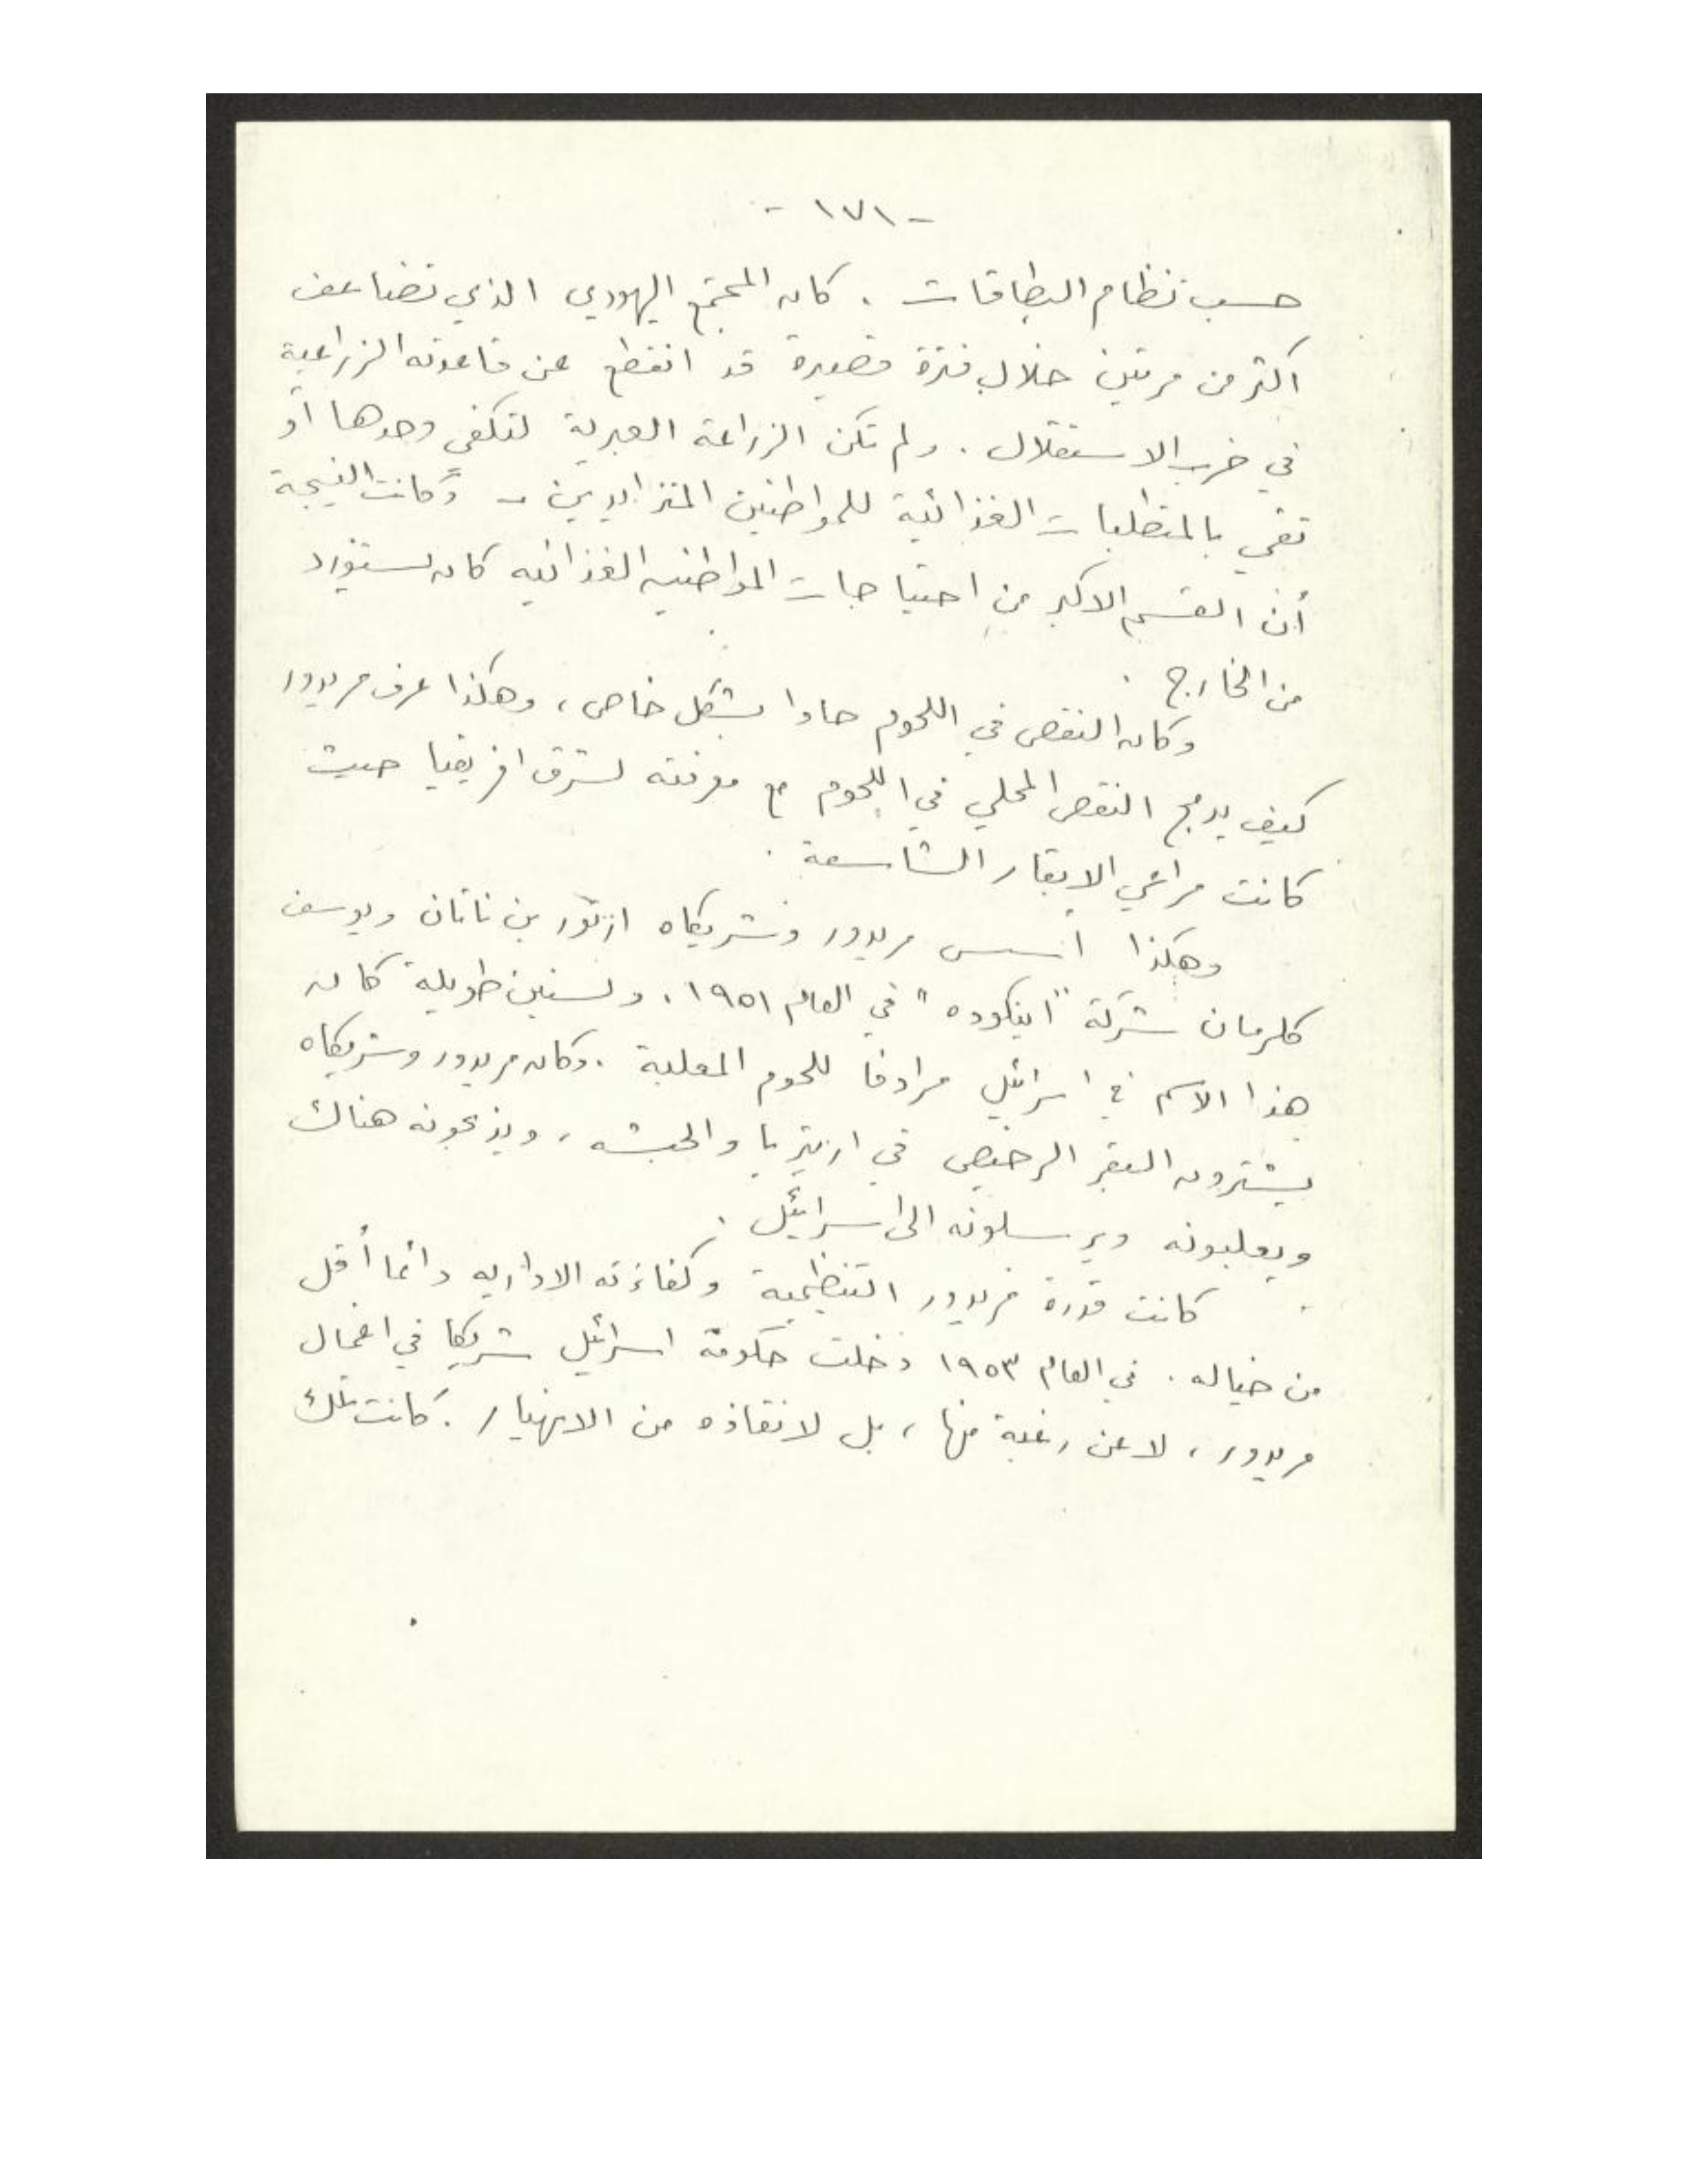 - ١٧١ -
حسب نظام البطاقات . كان المجتمع اليهودي الذي تضاعف
اكثر من مرتين خلال فترة قصيرة قد انقطع عن قاعدته الزراعية
في حرب الاستقلال . ولم تكن الزراعة العبرية لتكفي وحدها أو
تفي بالمتطلبات الغذائية للمواطنين المتزايدين - وكانت النتيجة
أن القسم الاكبر من احتياجات المواطنين الغذائيه كان يستورد
من الخارج .
وكان النقص في اللحوم حادا بشكل خاص ، وهكذا عرف مريدور
كيف يدمج النقص المحلي في اللحوم مع معرفته لشرق افريقيا حيث
كانت مراعي الابقار الشاسعة .
وهكذا أسس مريدور وشريكاه ارثور بن ناتان ويوسف
كلرمان شركة "اينكوده" في العام ١٩٥١ . ولسنين طويلة كان
هذا الاسم في اسرائيل مرادفا للحوم المعلبة . وكان مريدور وشريكاه
يشترون البقر الرخيص في اريتريا والحبشه ، ويذبحونه هناك
ويعلبونه ويرسلونه الى اسرائيل .
كانت قدرة مريدور التنظيمية وكفاءته الاداريه دائما أقل
من خياله . في العام ١٩٥٣ دخلت حكومة اسرائيل شريكا في اعمال
مريدور ، لا عن رغبة منها ، بل لانقاذه من الانهيار . كانت تلك